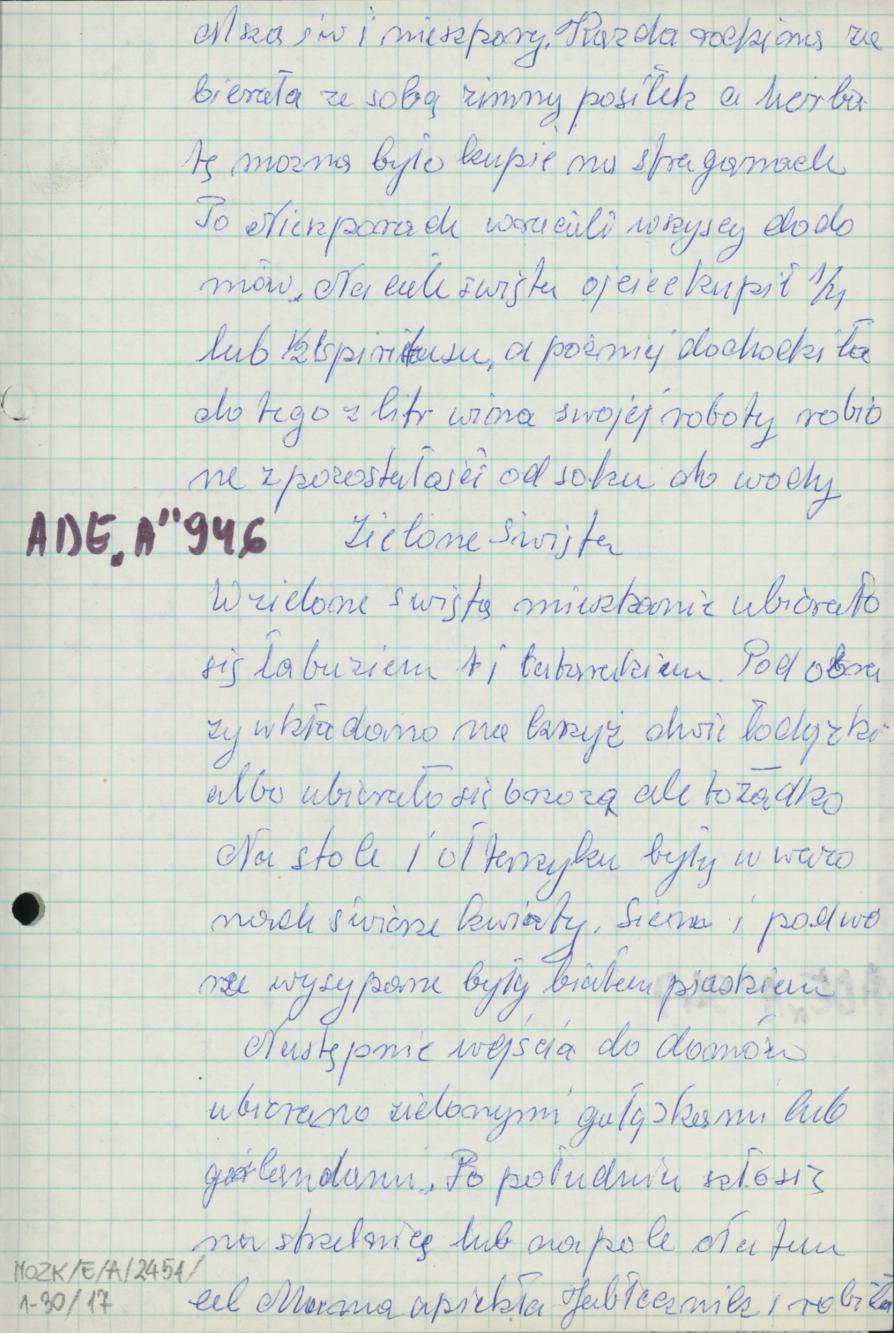 Msza św i nieszpory. Każda rodzina za
bierała ze sobą zimny posiłek a herba
tę można było kupić na straganach
Po Nieszporach wracali wszyscy do do
mów. Na całe święta ojciec kupił 1/1
lub 1/2 l spirytusu, a poźniej dochodziła
do tego z litr wina swojej roboty robio
ne z pozostałości od soku do wody
ADE "A" 946 Zielone Święta
W zielone święta mieszkanie ubierało
się tabuziem tj tatarakiem. Pod obra
zy wkładano na krzyż dwie łodyżki
albo ubierało się brzozą ale to żadko
Na stole i ołtarzyku były w wazo
nach świeże kwiaty. Siena i podwó
rze wysypane były białem piaskiem
Następnie wejścia do domów
ubierano zielonymi gałązkami lub
girlandami. Po południu szło się
na strzelnicę lub na pole na ten
cel Mama upiekła Jabłecznik i robiła
MOZK/E/A/2451/
1-30/17